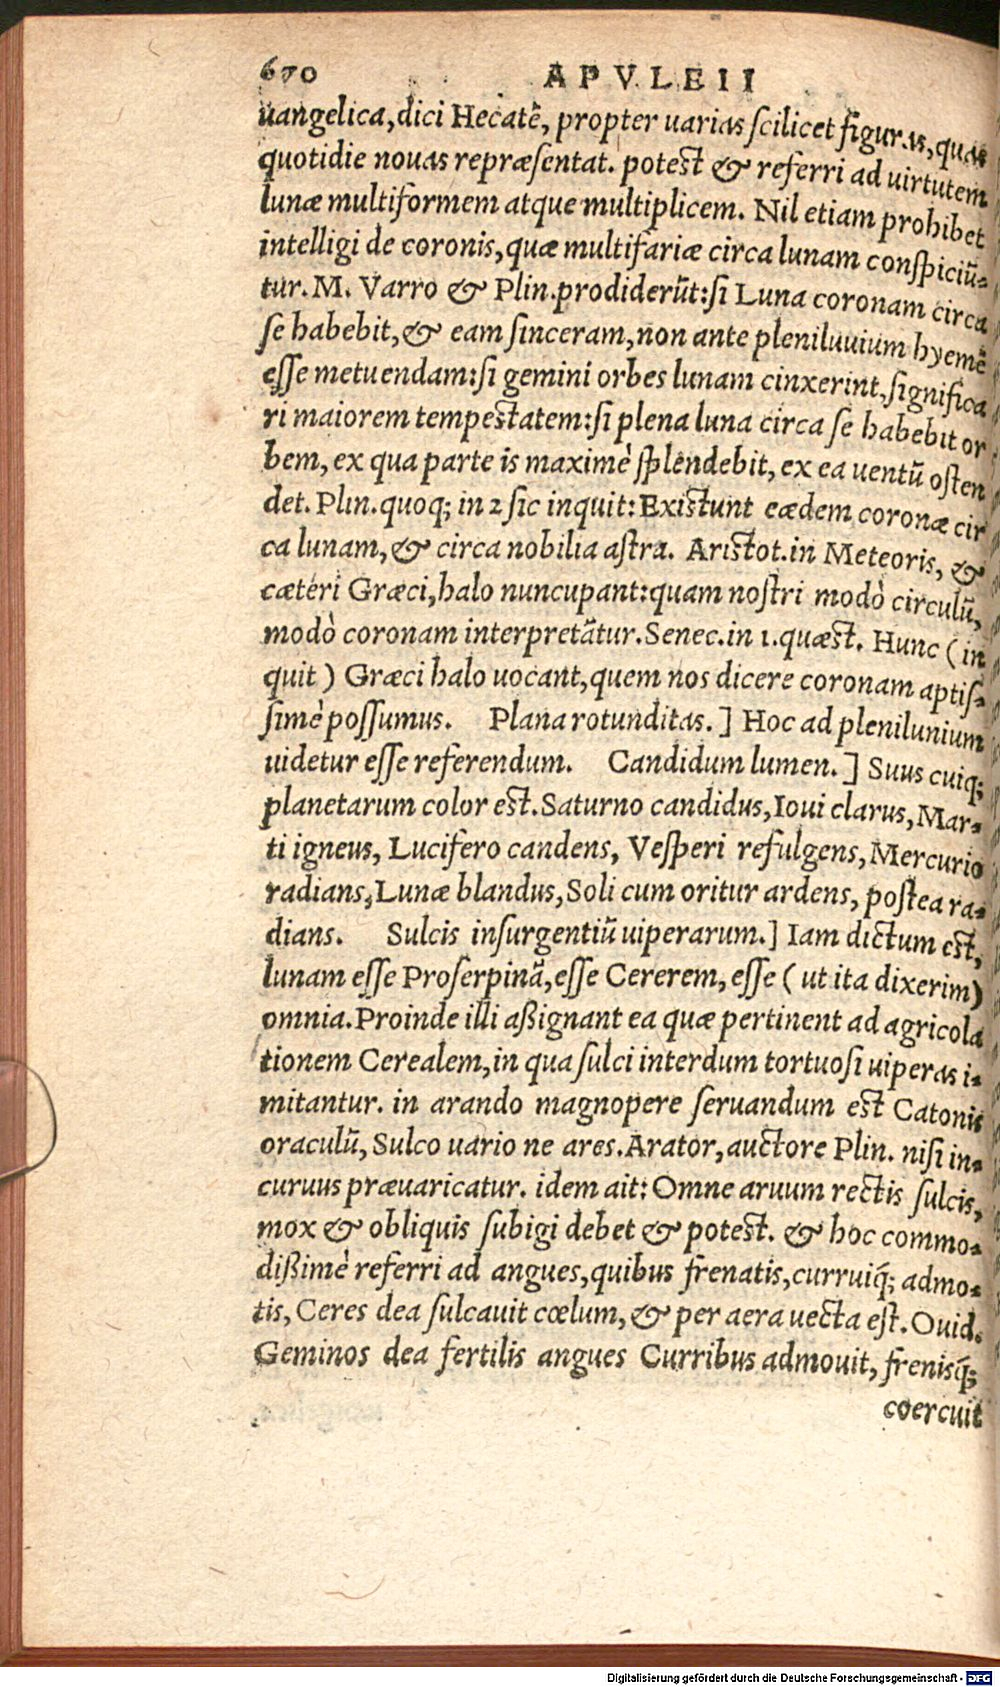 670 APVLEII
uangelica, dici Hecatẽ, propter uarias scilicet figuras, quas
quotidie nouas repræsentat. potest & referri ad uirtutem
lunæ multiformem atque multiplicem. Nil etiam prohibet
intelligi de coronis, quæ multifariæ circa lunam conspiciũ-
tur. M. Varro & Plin. prodiderũt: si Luna coronam circa
se habebit, & eam sinceram, non ante pleniluuium hyemẽ
esse metuendam: si gemini orbes lunam cinxerint, significa
ri maiorem tempestatem: si plena luna circa se habebit or
bem, ex qua parte is maximè splendebit, ex ea uentũ osten
det. Plin. quoq; in 2 sic inquit: Existunt eædem coronæ cir
ca lunam, & circa nobilia astra. Aristot. in Meteoris, &
cæteri Græci, halo nuncupant: quam nostri modò circulũ,
modò coronam interpretãtur. Senec. in 1. quæst. Hunc (in
quit) Græci halo uocant, quem nos dicere coronam aptis-
simè possumus. Plana rotunditas.] Hoc ad plenilunium
uidetur esse referendum. Candidum lumen.] Suus cuiq;
planetarum color est. Saturno candidus, Ioui clarus, Mar-
ti igneus, Lucifero candens, Vesperi refulgens, Mercurio
radians, Lunæ blandus, Soli cum oritur ardens, postea ra-
dians. Sulcis insurgentiũ uiperarum.] Iam dictum est,
lunam esse Proserpinã, esse Cererem, esse (ut ita dixerim)
omnia. Proinde illi aßignant ea quæ pertinent ad agricola
tionem Cerealem, in qua sulci interdum tortuosi uiperas i-
mitantur. in arando magnopere seruandum est Catonis
oraculũ, Sulco uario ne ares. Arator, auctore Plin. nisi in-
curuus præuaricatur. idem ait: Omne aruum rectis sulcis,
mox & obliquis subigi debet & potest. & hoc commo-
dißimè referri ad angues, quibus frenatis, curruiq́; admo-
tis, Ceres dea sulcauit cœlum, & per aera uecta est. Ouid.
Geminos dea fertilis angues Curribus admouit, frenisq́;
coercuit
Digitalisierung gefördert durch die Deutsche Forschungsgemeinschaft - DFG